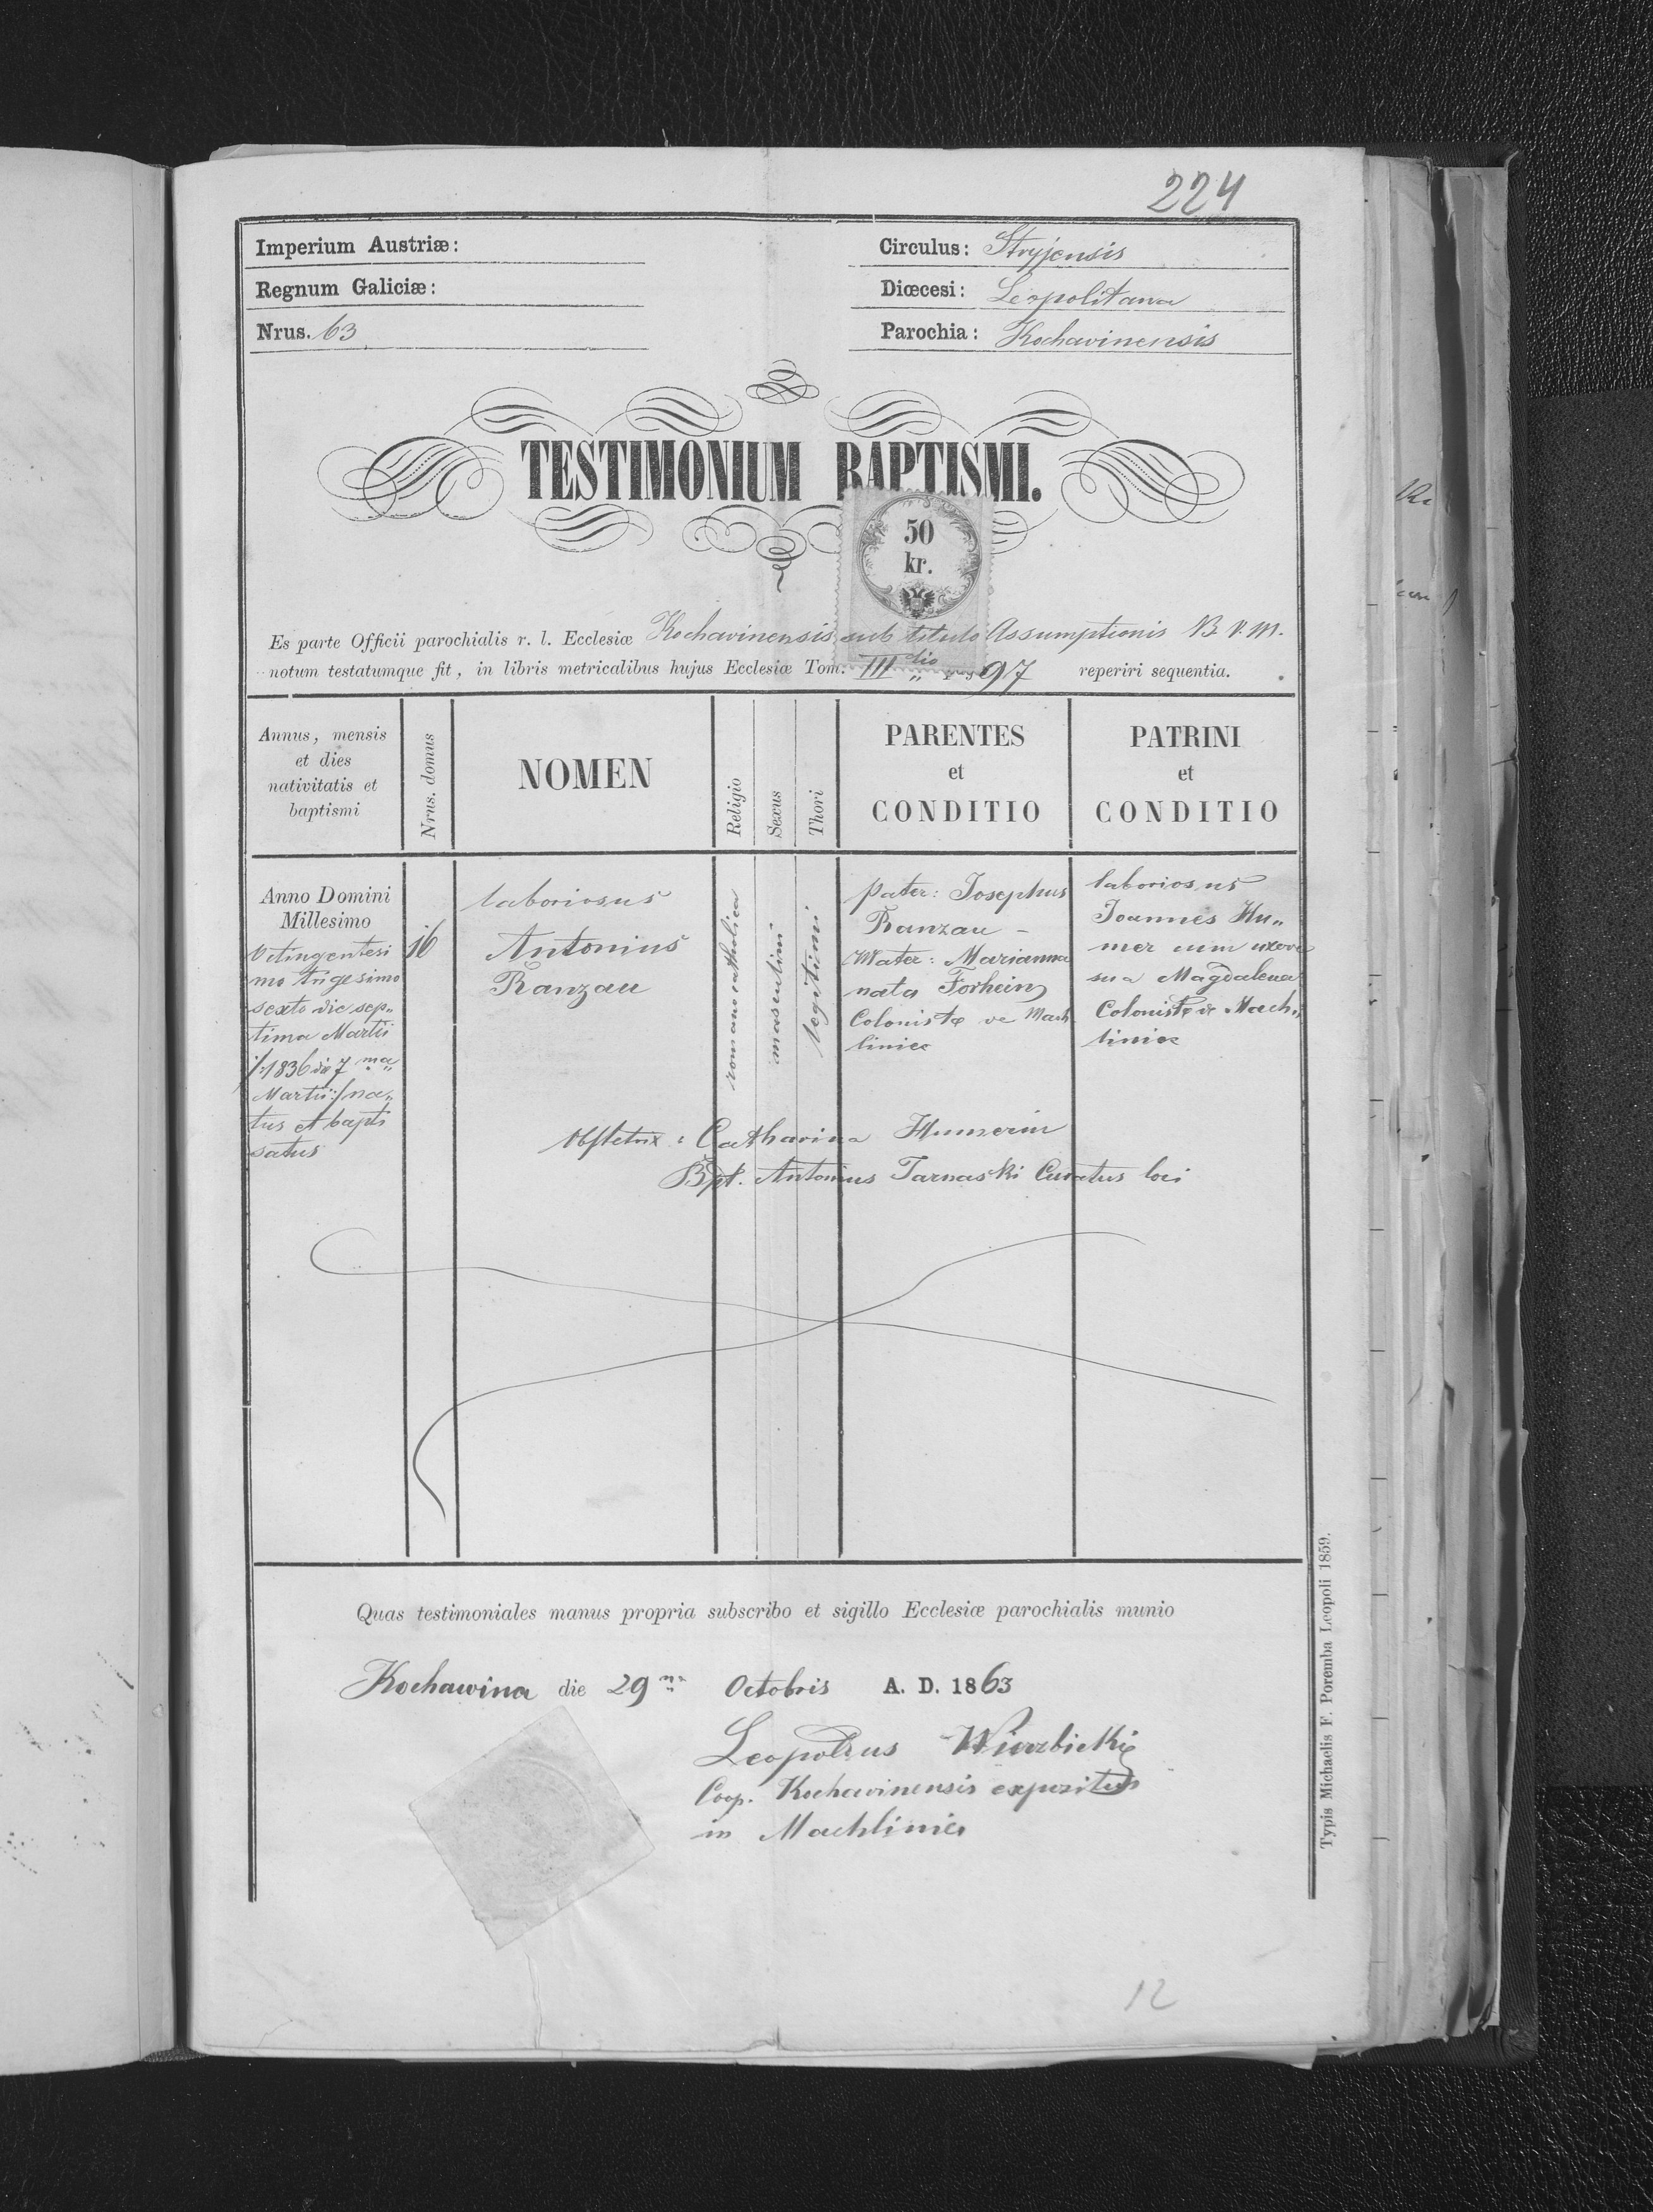 224
Imperium Austriæ:
Regnum Galiciæ:
Nrus. 63
Circulus: Stryjensis
Diœcesi: Leopolitana
Parochia: Kochavinensis
TESTIMONIUM BAPTISMI.
50
kr.
Es parte Officii parochialis r. l. Ecclesiæ Kochavinensis sub titulo Assumptionis B. V. M.
notum testatumque fit, in libris metricalibus hujus Ecclesiæ Tom. III tio pag 97 reperiri sequentia.
Annus, mensis
et dies
nativitatis et
baptismi
Nrus. domus
NOMEN
Religio
Sexus
Thori
PARENTES
et
CONDITIO
PATRINI
et
CONDITIO
Anno Domini
Millesimo
Octingentesi
mo trigesimo
sexto die sep„
tima Martii
/:1836 die 7 ma
Martii:/ na„
tus et bapti
satus
16
laboriosus
Antonius
Ranzau
romano catholica
masculini
legitimi
pater: Josephus
Ranzau –
Mater: Marianna
nata Forhein
Colonistæ de Mach
liniec
laboriosus
Joannes Hu„
mer cum uxore
sua Magdalena
Colonistæ de Mach„
liniec
Obstetrix: Catharina Humerin
Bpt. Antonius Tarnaski Curatus loci
Quas testimoniales manus propria subscribo et sigillo Ecclesiæ parochialis munio
Kochawina die 29 na Octobris A. D. 1863
Leopoldus Wierzbicki
Coop. Kochavinensis expozitus
in Machliniec
Typis Michaelis F. Poremba Leopoli 1859.
12